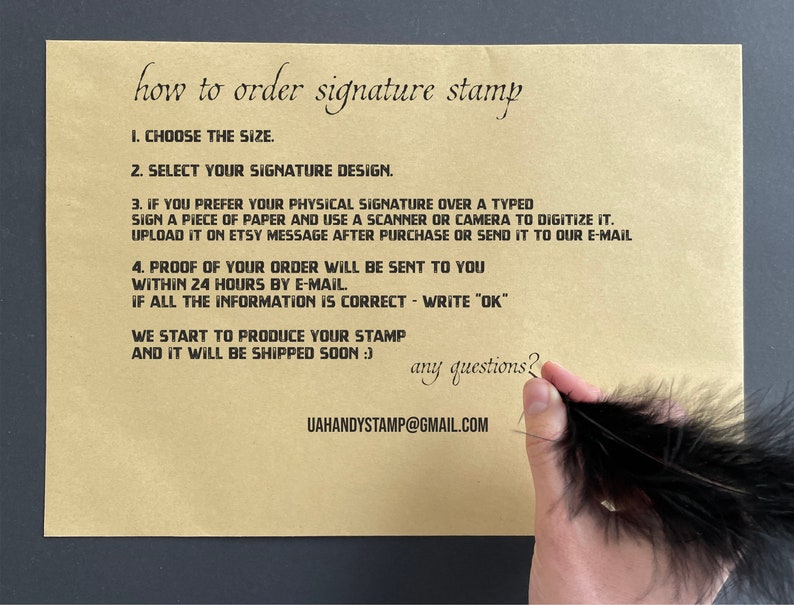 how to order signature stamp
1. CHOOSE THE SIZE.
2. SELECT YOUR SIGNATURE DESIGN.
3. IF YOU PREFER YOUR PHYSICAL SIGNATURE OVER A TYPED
SIGN A PIECE OF PAPER AND USE A SCANNER OR CAMERA TO DIGITIZE IT.
UPLOAD IT ON ETSY MESSAGE AFTER PURCHASE OR SEND IT TO OUR E-MAIL
4. PROOF OF YOUR ORDER WILL BE SENT TO YOU
WITHIN 24 HOURS BY E-MAIL.
IF ALL THE INFORMATION IS CORRECT - WRITE "OK"
WE START TO PRODUCE YOUR STAMP
AND IT WILL BE SHIPPED SOON :)
any questions?
UAHANDYSTAMP@GMAIL.COM